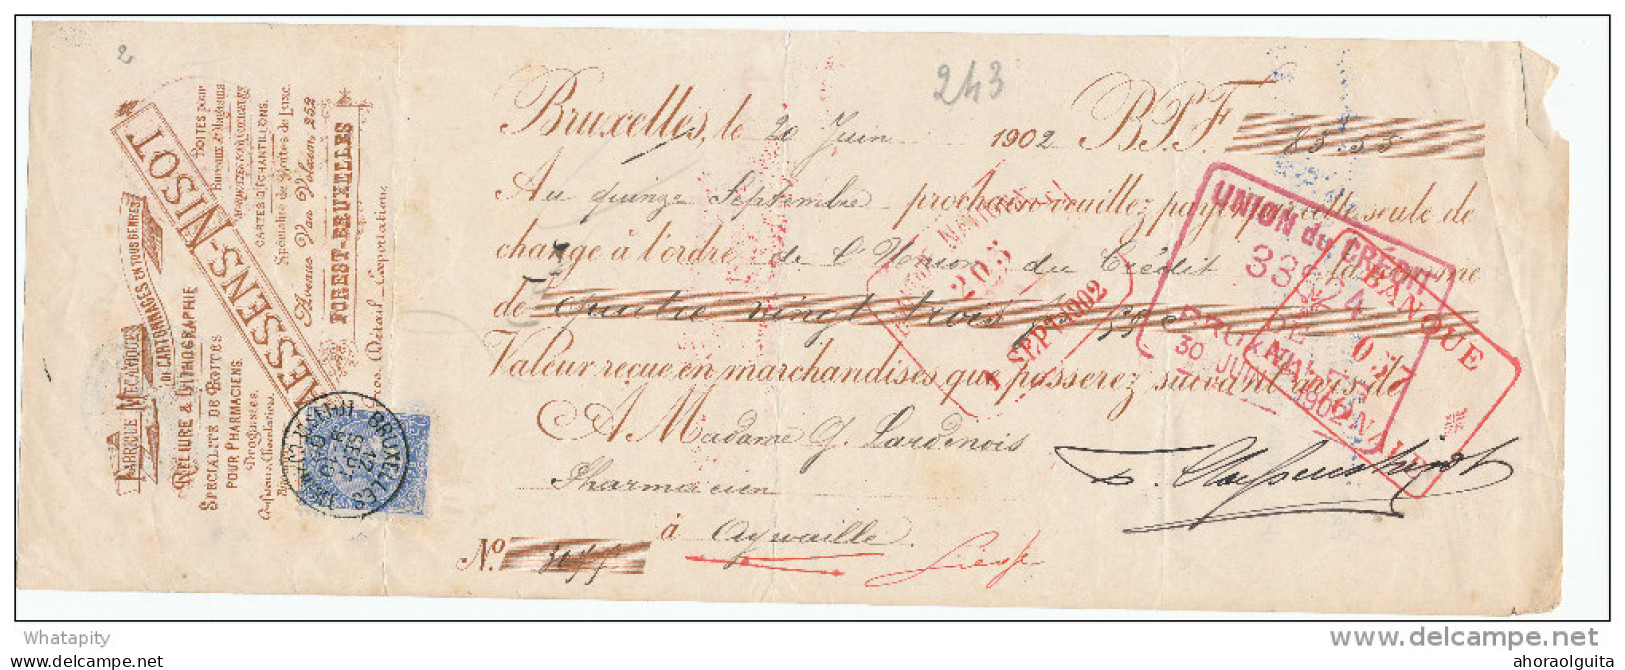 2
243
FABRIQUE MÉCANIQUE
DE CARTONNAGES EN TOUS GENRES
RELIURE & LITHOGRAPHIE
SPÉCIALITÉ DE BOITES
POUR PHARMACIENS,
Droguistes,
AESSENS-NISOT
BOITES pour
Bureaux & Magasins
CARTES D'ÉCHANTILLONS.
Spécialité de Boites de Luxe.
Avenue Van Volxem, 252
FOREST-BRUXELLES
Gros, Détail, Exportation
BRUXELLES
Bruxelles, le 20 Juin 1902 B.P.F. 83.55
Au quinze Septembre prochain veuillez payer par cette seule de
change à l'ordre de l'Union du Crédit la somme
de quatre vingt trois frs 55 c
Valeur reçue en marchandises que passerez suivant avis de
A Madame G. Lardinois
Pharmacien
à Aywaille.
No
Liège
203
SEPT 1902
UNION du CRÉDIT
33824
DE
BRUXELLES
30 JUIN 1902
BANQUE
057
NATIONALE
Whatapity
www.delcampe.net
ahoraolguita